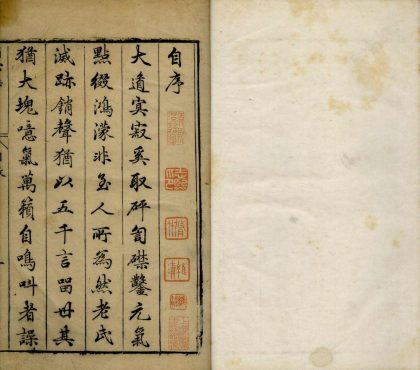 自序
大道寞寂奚取砰訇鑿元氣
點綴鴻濛非至人所為然老氏
滅跡銷聲猶以五千言留毋其
猶大塊噫氣萬籟自鳴叫者譟